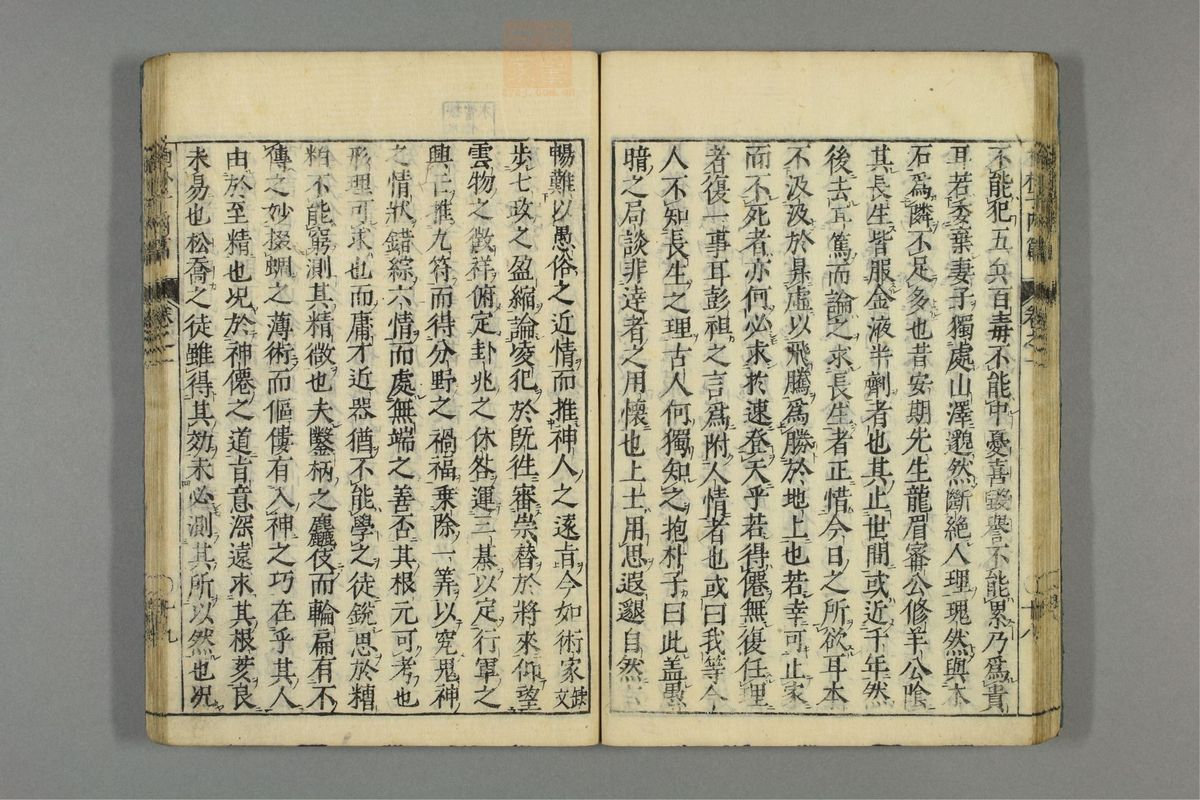 不能犯五兵百毒不能中憂喜毀譽不能累乃爲貴
耳若委棄妻子獨處山澤邈然斷絕人理瑰然與木
石爲隣不足多也昔安期先生龍眉甯公修羊公陰
其長生皆服金液半劑者也其止世間或近千年然
後去耳篤而論之求長生者正惜今日之所欲耳本
不汲汲於昇虛以飛騰爲勝於地上也若幸可止家
而不死者亦何必求於速登天乎若得僊無復任理
者復一事耳彭祖之言爲附人情者也或曰我等
人不知長生之理古人何獨知之抱朴子曰此盖愚
暗之局談非達者之用懷也上士用思遐邈自然
暢難以愚俗之近情而推神人之遠旨今如術家缺文
步七政之盈縮論凌犯於既往審崇替於將來仰望
雲物之徵祥俯定卦兆之休咎運三棊以定行軍之
興亡推九符而得分野之禍福乗除一筭以究鬼神
之情狀錯綜六情而處無端之善否其根元可考也
形理可求也而庸才近器猶不能學之徒銳思於糟
粕不能窮測其精徵也夫鑿枘之麤伎而輪扁有不
傳之妙掇蜩之薄術而傴僂有入神之巧在乎其人
由於至精也况於神僊之道旨意深遠求其根荄良
未易也松喬之徒雖得其効未必測其所以然也况
卷之一
十八
卷之一
十九